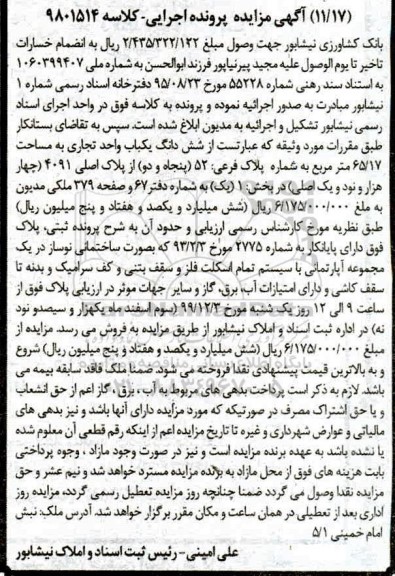 (۱۱/۱۷) آگهی مزایده پرونده اجرایی- کلاسه ۹۸۰۱۵۱۴
بانک کشاورزی نیشابور جهت وصول مبلغ ۲/۴۳۵/۳۲۲/۱۲۲ ریال به انضمام خسارات
تاخیر تا یوم الوصول علیه مجید پیرنیاپور فرزند ابوالحسن به شماره ملی ۱۰۶۰۳۹۹۴۰۷
به استناد سند رهنی شماره ۵۵۲۲۸ مورخ ۹۵/۰۸/۲۳ دفترخانه اسناد رسمی شماره ۱
نیشابور مبادرت به صدور اجرائیه نموده و پرونده به کلاسه فوق در واحد اجرای اسناد
رسمی نیشابور تشکیل و اجرائیه به مدیون ابلاغ شده است. سپس به تقاضای بستانکار
طبق مقررات مورد وثیقه که عبارتست از شش دانگ یکباب واحد تجاری به مساحت
۶۵/۱۷ متر مربع به شماره پلاک فرعی: ۵۲ (پنجاه و دو) از پلاک اصلی ۴۰۹۱ (چهار
هزار و نود و یک اصلی) در بخش ۱ (یک) به شماره دفتر ۶۷ و صفحه ۳۷۹ ملکی مدیون
به ملغ ۶/۱۷۵/۰۰۰/۰۰۰ ریال (شش میلیارد و یکصد و هفتاد و پنج میلیون ریال)
طبق نظریه مورخ کارشناس رسمی ارزیابی و حدود آن به شرح پرونده ثبتی، پلاک
فوق دارای پایانکار به شماره ۲۷۷۵ مورخ ۹۳/۲/۳ که بصورت ساختمانی نوساز در یک
مجموعه آپارتمانی با سیستم تمام اسکلت فلز و سقف بتنی و کف سرامیک و بدنه تا
سقف کاشی و دارای امتیازات آب، برق، گاز و سایر جهات موثر در ارزیابی پلاک فوق از
ساعت ۹ الی ۱۲ روز یک شنبه مورخ ۹۹/۱۲/۳ (سوم اسفند ماه یکهزار و سیصدو نود
نه) در اداره ثبت اسناد و املاک نیشابور از طریق مزایده به فروش می رسد. مزایده از
مبلغ ۶/۱۷۵/۰۰۰/۰۰۰ ریال (شش میلیارد و یکصد و هفتاد و پنج میلیون ریال) شروع
و به بالاترین قیمت پیشنهادی نقدا فروخته می شود. ضمنا ملک فاقد سابقه بیمه می
باشد. لازم به ذکر است پرداخت بدهی های مربوط به آب، برق، گاز اعم از حق انشعاب
و یا حق اشتراک مصرف در صورتیکه که مورد مزایده دارای آنها باشد و نیز بدهی های
مالیاتی و عوارض شهرداری و غیره تا تاریخ مزایده اعم از اینکه رقم قطعی آن معلوم شده
یا نشده باشد به عهده برنده مزایده است و نیز در صورت وجود مازاد ، وجوه پرداختی
بابت هزینه های فوق از محل مازاد به برنده مزایده مسترد خواهد شد و نیم عشر و حق
مزایده نقدا وصول می گردد ضمنا چنانچه روز مزایده تعطیل رسمی گردد، مزایده روز
اداری بعد از تعطیلی در همان ساعت و مکان مقرر برگزار خواهد شد. آدرس ملک: نبش
امام خمینی ۵/۱
علی امینی- رئیس ثبت اسناد و املاک نیشابور